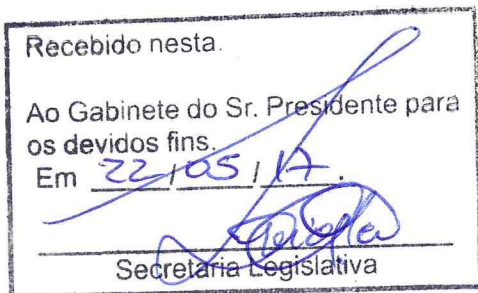 Recebido nesta.
Ao Gabinete do Sr. Presidente para
os devidos fins.
Em 22/05/17.
Secretaria Legislativa